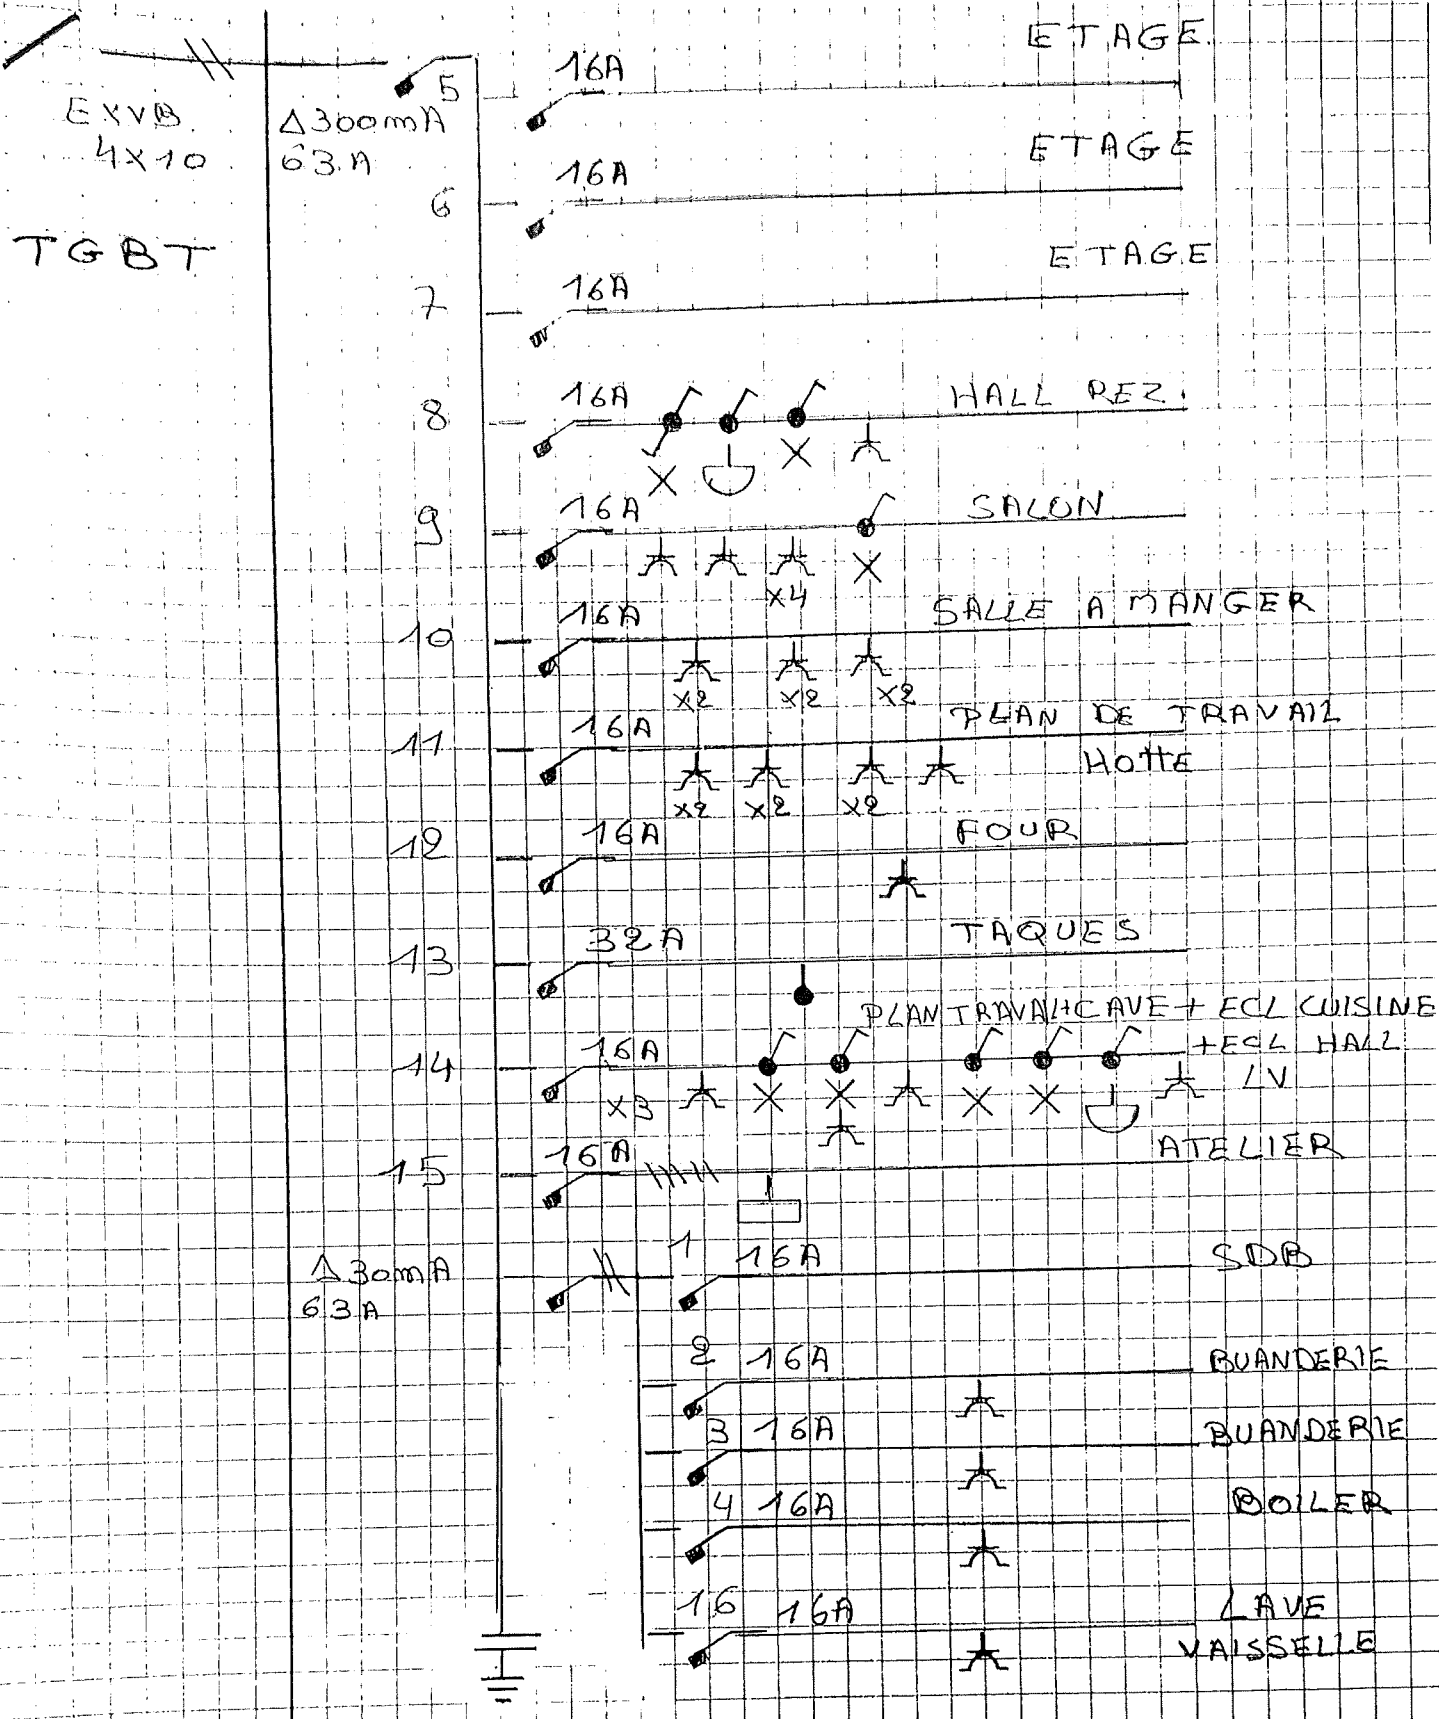 ETAGE
16A
5
EXVB
4x10
Δ300mA
63A
ETAGE
16A
6
TGBT
ETAGE
16A
7
8
16A
HALL REZ.
9
16A
SALON
x4
10
16A
SALLE A MANGER
x2
x2
x2
11
16A
PLAN DE TRAVAIL
HOTTE
x2
x2
x2
12
16A
FOUR
13
32A
TAQUES
PLAN TRAVAI+CAVE + ECL CUISINE
+ECL HALL
14
16A
x3
LV
15
16A
ATELIER
Δ30mA
63A
1
16A
SDB
2
16A
BUANDERIE
3
16A
BUANDERIE
4
16A
BOILER
16
16A
LAVE
VAISSELLE